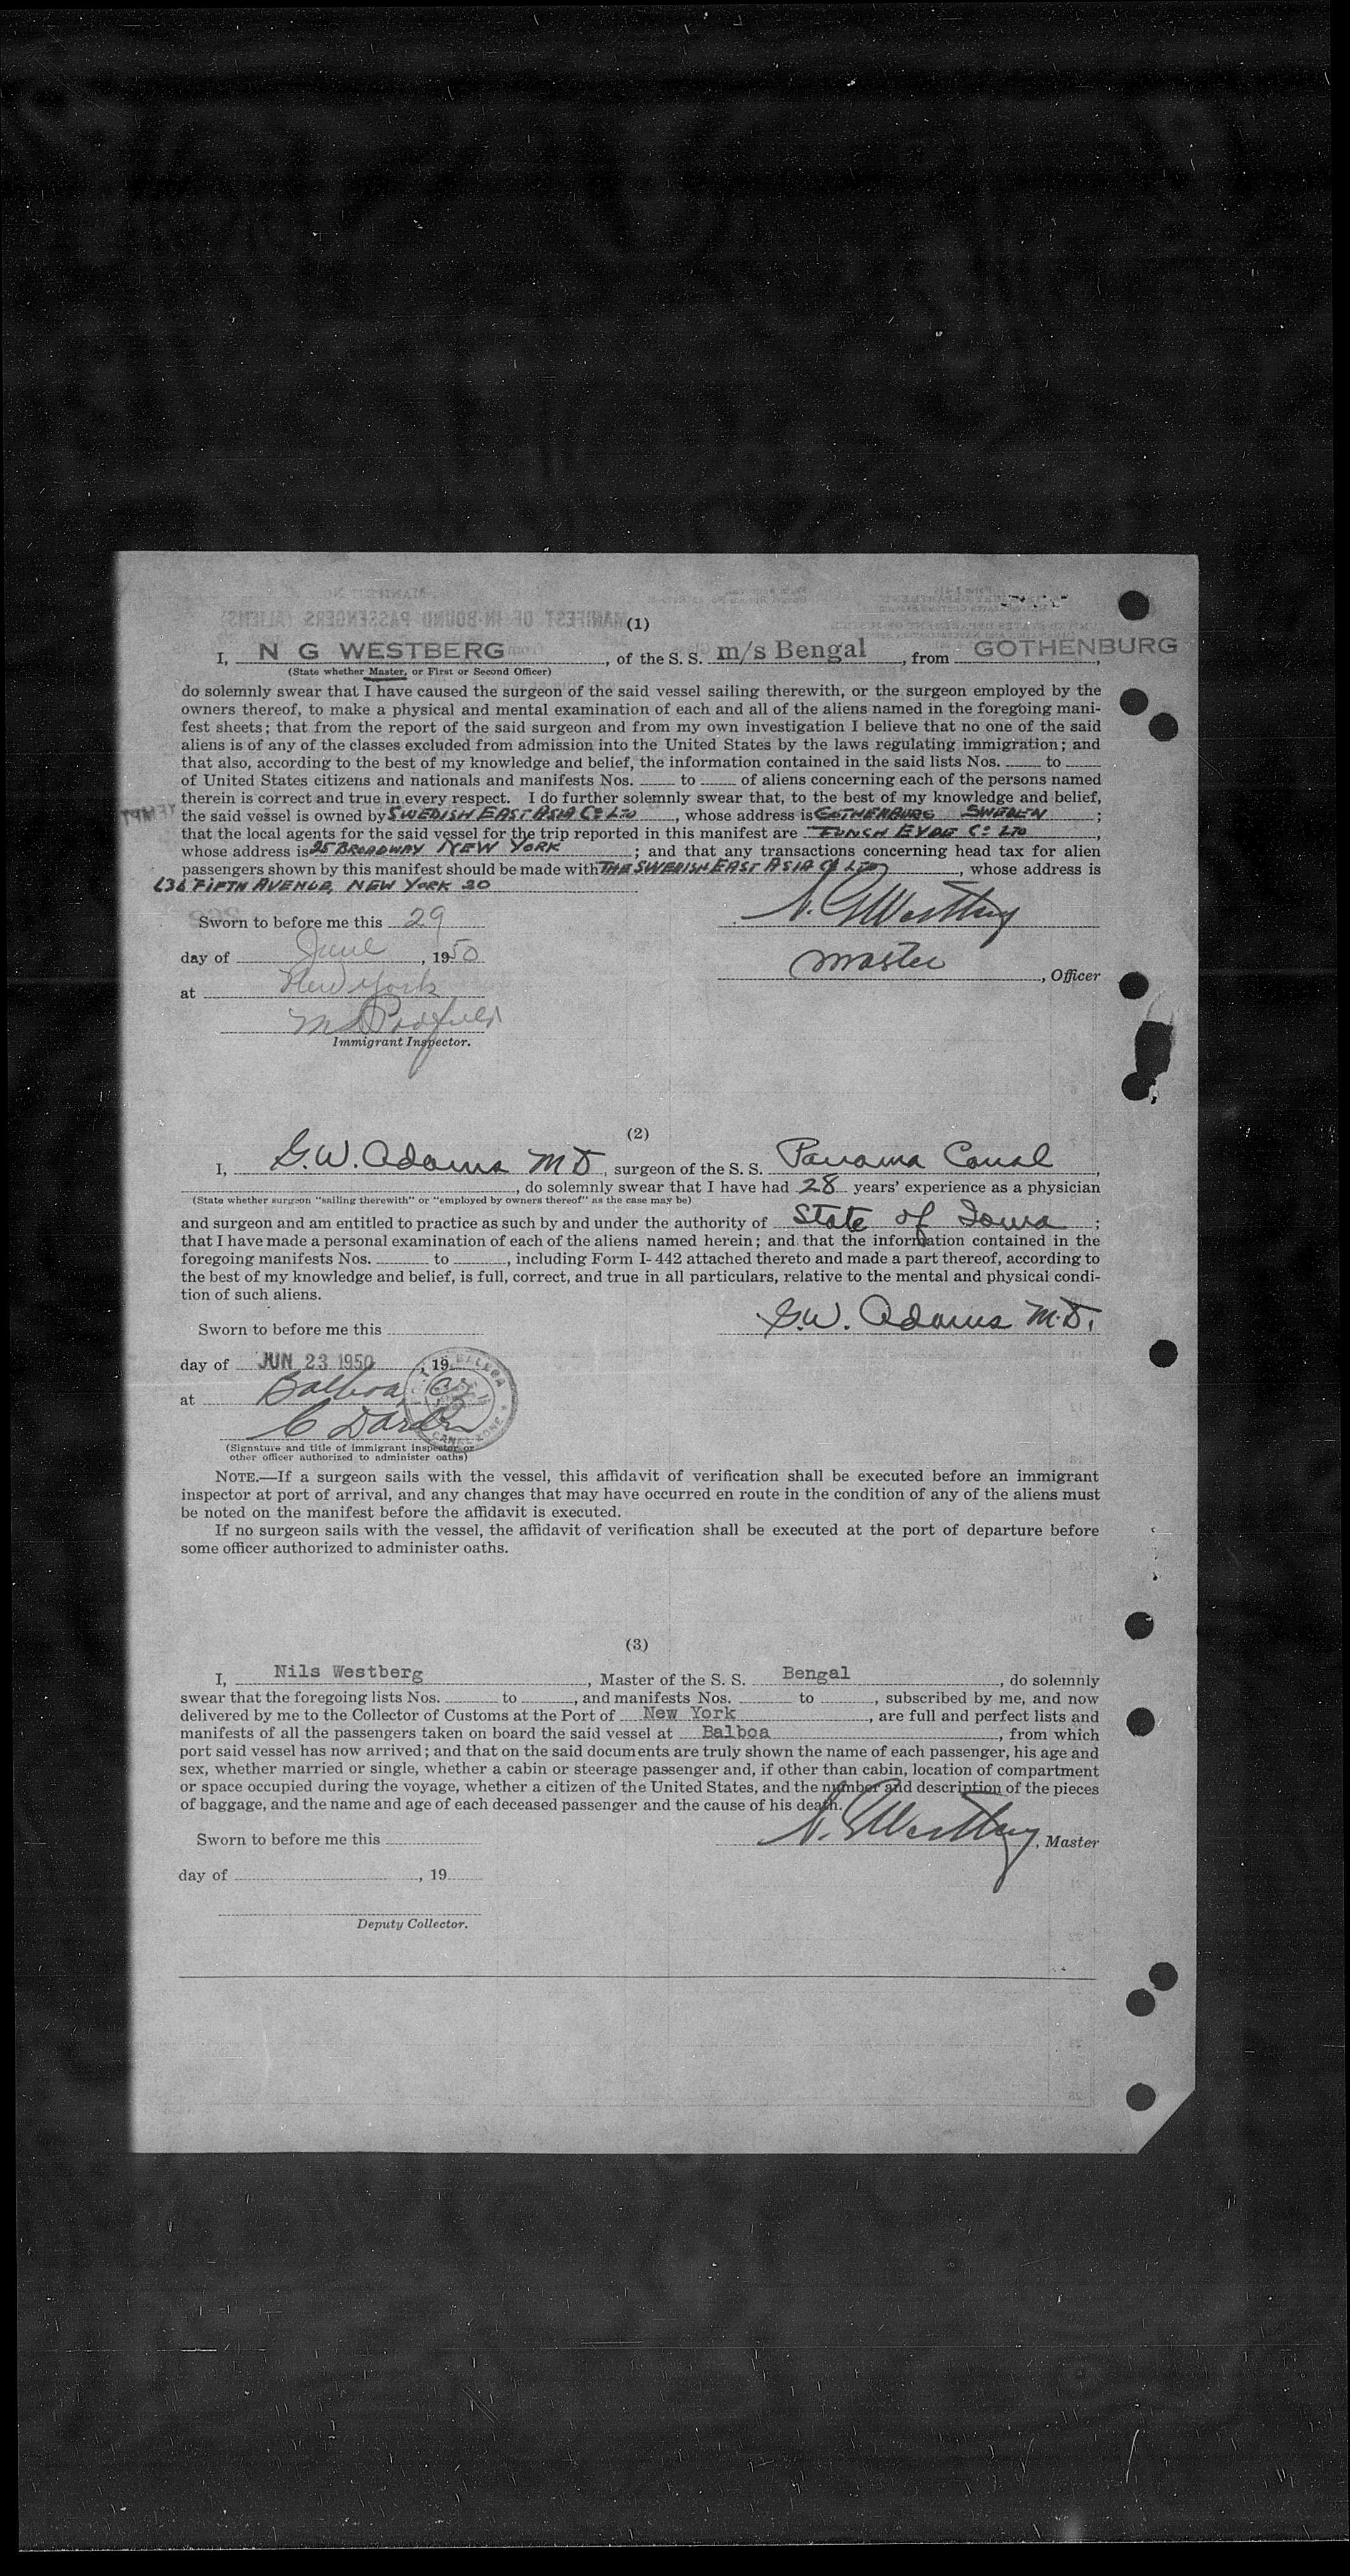 (1)
I, N G WESTBERG, of the S. S. m/s Bengal, from GOTHENBURG,
(State whether Master, or First or Second Officer)
do solemnly swear that I have caused the surgeon of the said vessel sailing therewith, or the surgeon employed by the
owners thereof, to make a physical and mental examination of each and all of the aliens named in the foregoing mani-
fest sheets; that from the report of the said surgeon and from my own investigation I believe that no one of the said
aliens is of any of the classes excluded from admission into the United States by the laws regulating immigration; and
that also, according to the best of my knowledge and belief, the information contained in the said lists Nos. ____ to ____
of United States citizens and nationals and manifests Nos. ____ to ____ of aliens concerning each of the persons named
therein is correct and true in every respect. I do further solemnly swear that, to the best of my knowledge and belief,
the said vessel is owned by SWEDISH EAST ASIA Co LTD, whose address is GOTHENBURG SWEDEN;
that the local agents for the said vessel for the trip reported in this manifest are FUNCH EYDE Co LTD,
whose address is 25 BROADWAY NEW YORK; and that any transactions concerning head tax for alien
passengers shown by this manifest should be made with THE SWEDISH EAST ASIA Co LTD, whose address is
636 FIFTH AVENUE, NEW YORK 20
Sworn to before me this 29
N. G Westberg
day of June, 1950
Master, Officer
at New York
Immigrant Inspector.
(2)
I, G.W. Adams MD, surgeon of the S. S. Panama Canal,
____, do solemnly swear that I have had 28 years' experience as a physician
(State whether surgeon "sailing therewith" or "employed by owners thereof" as the case may be)
and surgeon and am entitled to practice as such by and under the authority of State of Iowa;
that I have made a personal examination of each of the aliens named herein; and that the information contained in the
foregoing manifests Nos. ____ to ____, including Form I-442 attached thereto and made a part thereof, according to
the best of my knowledge and belief, is full, correct, and true in all particulars, relative to the mental and physical condi-
tion of such aliens.
G.W. Adams M.D.
Sworn to before me this ____
day of JUN 23 1950, 19__
at Balboa, CZ
C Darden
(Signature and title of immigrant inspector or
other officer authorized to administer oaths)
NOTE.—If a surgeon sails with the vessel, this affidavit of verification shall be executed before an immigrant
inspector at port of arrival, and any changes that may have occurred en route in the condition of any of the aliens must
be noted on the manifest before the affidavit is executed.
If no surgeon sails with the vessel, the affidavit of verification shall be executed at the port of departure before
some officer authorized to administer oaths.
(3)
I, Nils Westberg, Master of the S. S. Bengal, do solemnly
swear that the foregoing lists Nos. ____ to ____, and manifests Nos. ____ to ____, subscribed by me, and now
delivered by me to the Collector of Customs at the Port of New York, are full and perfect lists and
manifests of all the passengers taken on board the said vessel at Balboa, from which
port said vessel has now arrived; and that on the said documents are truly shown the name of each passenger, his age and
sex, whether married or single, whether a cabin or steerage passenger and, if other than cabin, location of compartment
or space occupied during the voyage, whether a citizen of the United States, and the number and description of the pieces
of baggage, and the name and age of each deceased passenger and the cause of his death.
Sworn to before me this ____
N. G Westberg, Master
day of ____, 19__
Deputy Collector.